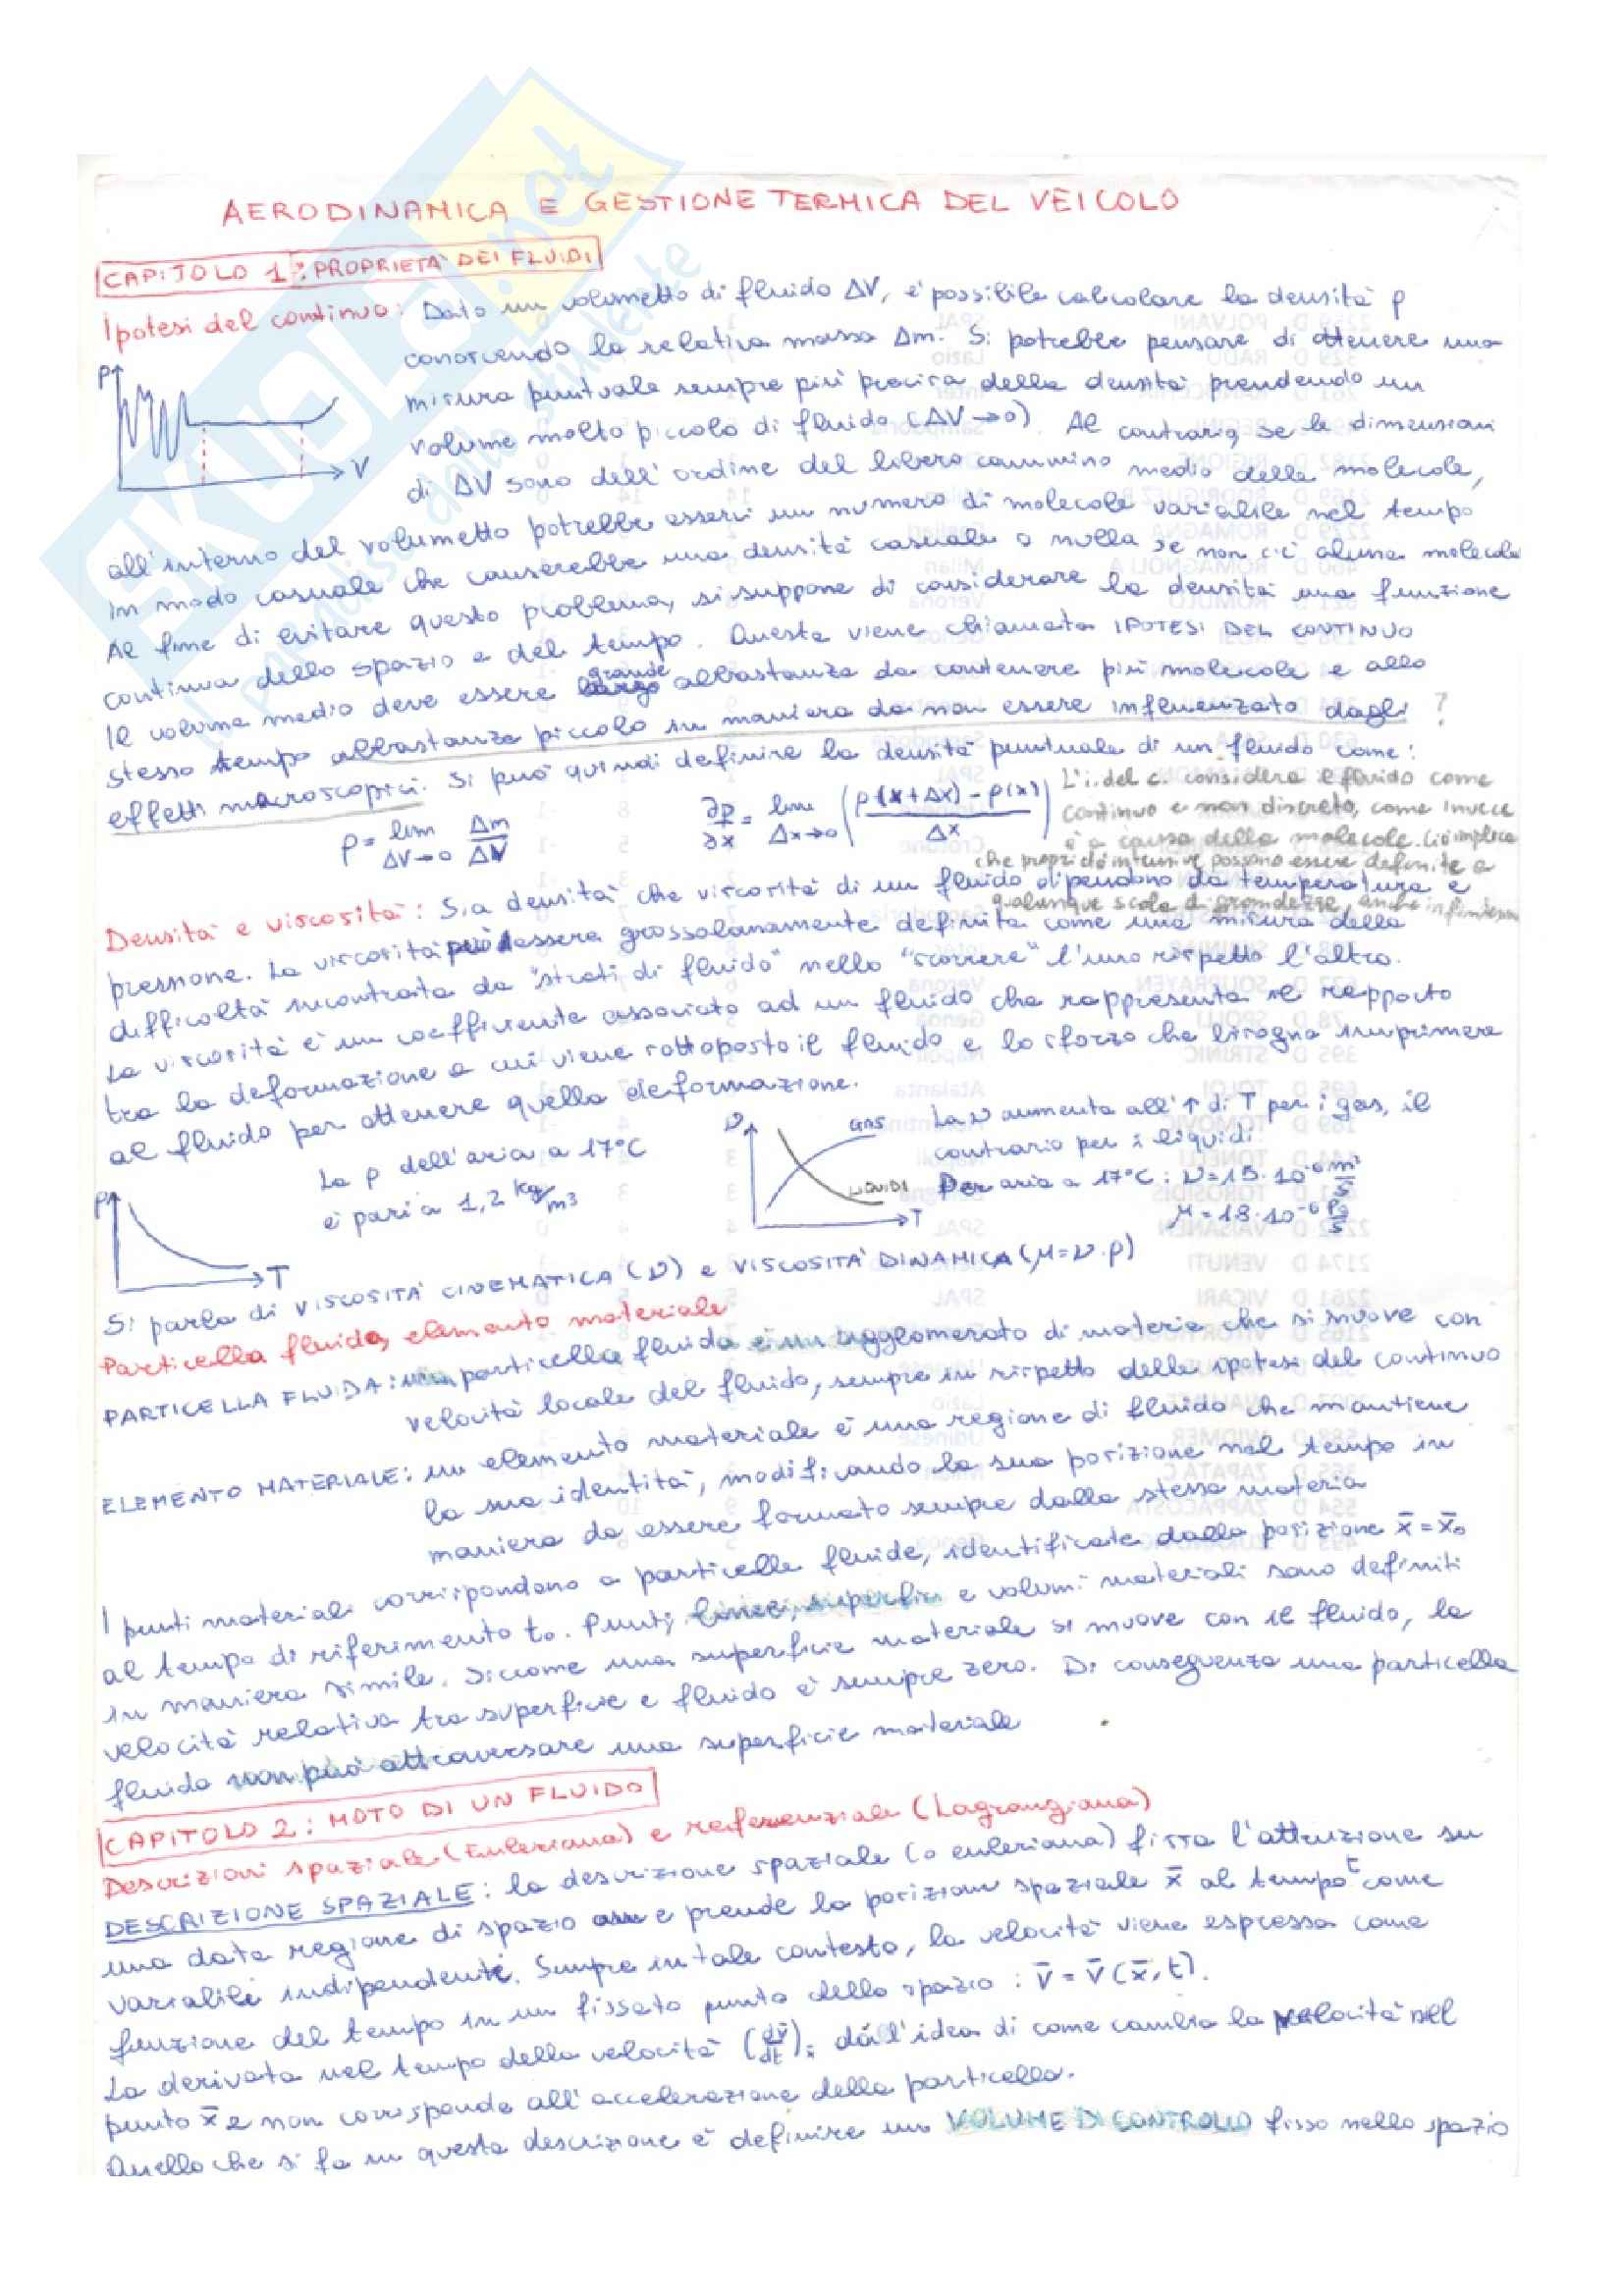 AERODINAMICA E GESTIONE TERMICA DEL VEICOLO
CAPITOLO 1: PROPRIETÀ DEI FLUIDI
Ipotesi del continuo: Dato un volumetto di fluido ΔV, è possibile calcolare la densità ρ
conoscendo la relativa massa Δm. Si potrebbe pensare di ottenere una
misura puntuale sempre più precisa della densità prendendo un
volume molto piccolo di fluido (ΔV→0). Al contrario, se le dimensioni
di ΔV sono dell'ordine del libero cammino medio delle molecole,
ρ
V
all'interno del volumetto potrebbe esserci un numero di molecole variabile nel tempo
in modo casuale che causerebbe una densità casuale o nulla se non c'è alcuna molecola
Al fine di evitare questo problema, si suppone di considerare la densità una funzione
continua dello spazio e del tempo. Questa viene chiamata IPOTESI DEL CONTINUO
Il volume medio deve essere grande abbastanza da contenere più molecole e allo
stesso tempo abbastanza piccolo in maniera da non essere influenzato dagli ?
effetti macroscopici. Si può quindi definire la densità puntuale di un fluido come:
ρ = lim ΔV→0 Δm/ΔV
∂ρ/∂x = lim Δx→0 (ρ(x+Δx) - ρ(x) / Δx)
L'i. del c. considera il fluido come
continuo e non discreto, come invece
è a causa delle molecole. Ciò implica
che proprietà intensive possano essere definite a
qualunque scala di grandezze, anche infinitesim
Densità e viscosità: Sia densità che viscosità di un fluido dipendono da temperatura e
pressione. La viscosità può essere grossolanamente definita come una misura della
difficoltà incontrata da "strati di fluido" nello "scorrere" l'uno rispetto l'altro.
La viscosità è un coefficiente associato ad un fluido che rappresenta il rapporto
tra la deformazione a cui viene sottoposto il fluido e lo sforzo che bisogna imprimere
al fluido per ottenere quella deformazione.
ρ
T
La ρ dell'aria a 17°C
è pari a 1,2 kg/m³
ν
GAS
LIQUIDI
T
La ν aumenta all'↑ di T per i gas, il
contrario per i liquidi
Per aria a 17°C: ν=15·10⁻⁶ m²/s
μ=18·10⁻⁶
Si parla di VISCOSITÀ CINEMATICA (ν) e VISCOSITÀ DINAMICA (μ=ν·ρ)
Particella fluida, elemento materiale
PARTICELLA FLUIDA: una particella fluida è un agglomerato di materia che si muove con
velocità locale del fluido, sempre in rispetto delle ipotesi del continuo
ELEMENTO MATERIALE: un elemento materiale è una regione di fluido che mantiene
la sua identità, modificando la sua posizione nel tempo in
maniera da essere formato sempre dalla stessa materia
I punti materiali corrispondono a particelle fluide, identificate dalla posizione x̄=x̄₀
al tempo di riferimento t₀. Punti, linee, superfici e volumi materiali sono definiti
in maniera simile. Siccome una superficie materiale si muove con il fluido, la
velocità relativa tra superficie e fluido è sempre zero. Di conseguenza una particella
fluida non può attraversare una superficie materiale
CAPITOLO 2: MOTO DI UN FLUIDO
Descrizioni spaziale (Euleriana) e referenziale (Lagrangiana)
DESCRIZIONE SPAZIALE: la descrizione spaziale (o euleriana) fissa l'attenzione su
una data regione di spazio e prende la posizione spaziale x̄ al tempo t come
variabili indipendenti. Sempre in tale contesto, la velocità viene espressa come
funzione del tempo in un fissato punto dello spazio: v̄ = v̄(x̄,t).
La derivata nel tempo della velocità (dv̄/dt)ₓ dà l'idea di come cambia la velocità nel
punto x̄ e non corrisponde all'accelerazione della particella.
Quello che si fa in questa descrizione è definire un VOLUME DI CONTROLLO fisso nello spazio